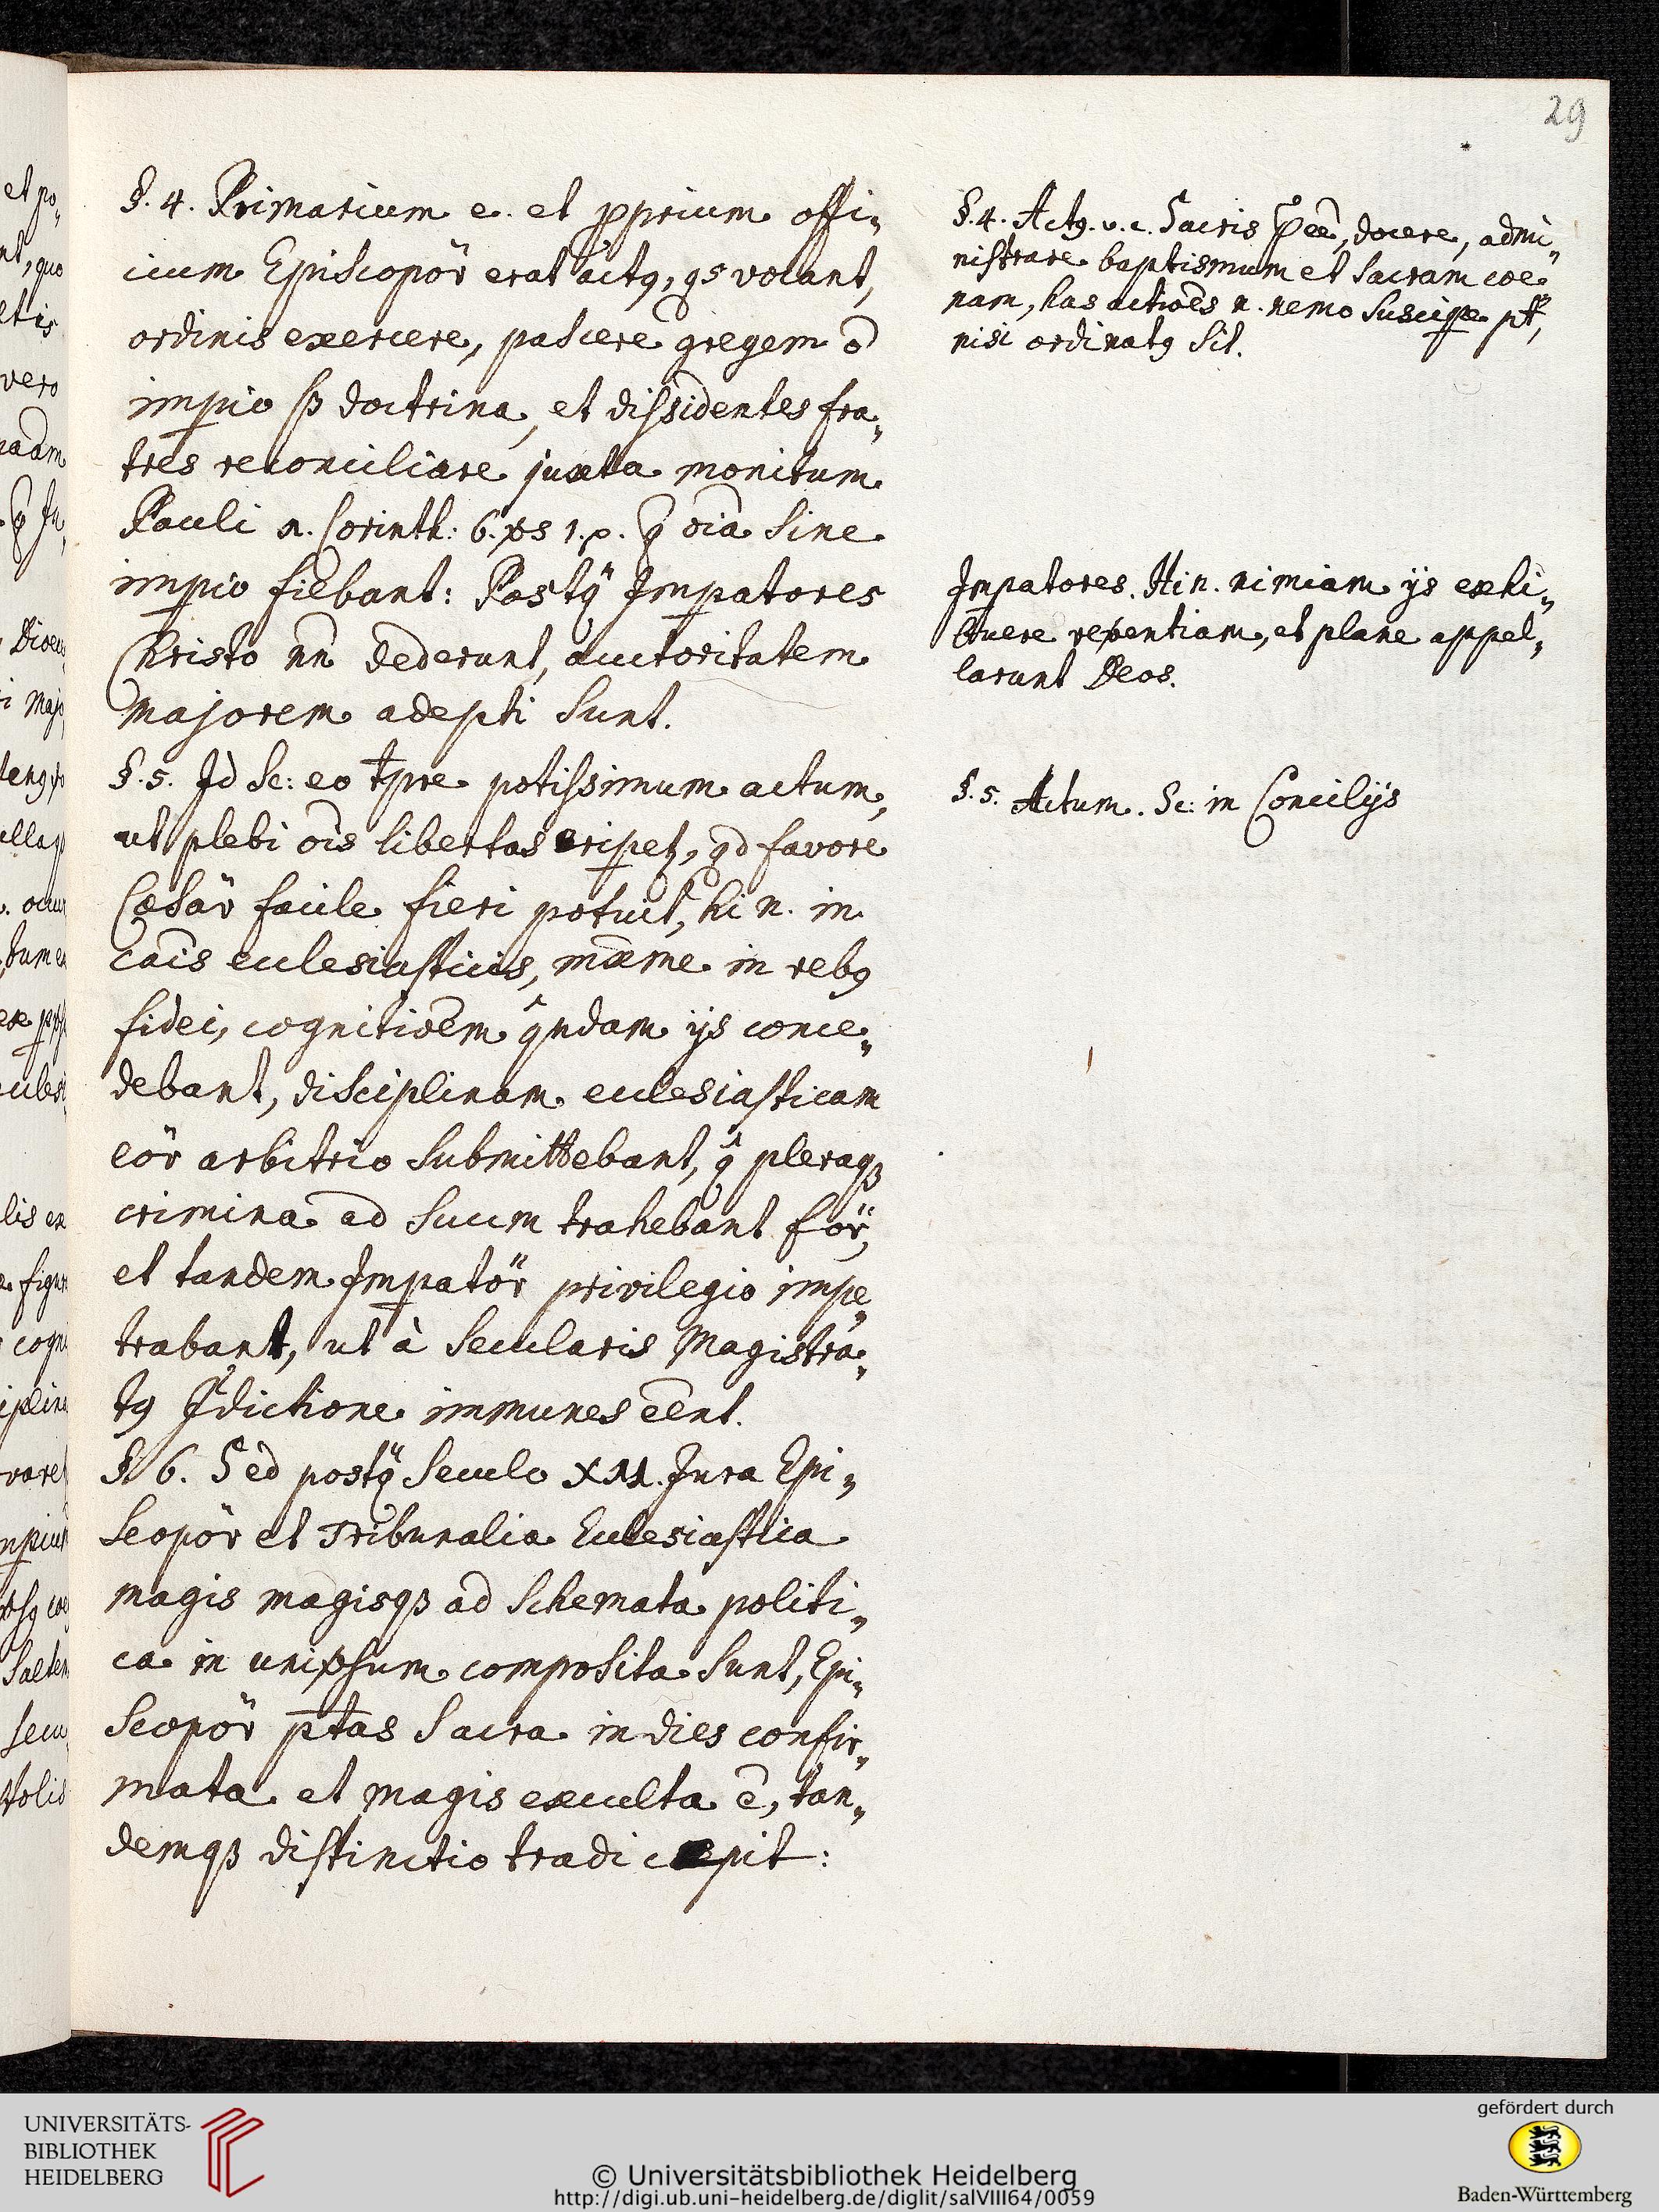 29
§. 4. Primarium e. et pprium offi„
cium Episcopör erat actꝯ, qs vocant,
ordinis exercere, pascere gregem ō
impio sꝫ doctrina, et dissidentes fra„
tres reconciliare juxta monitum
Pauli 1. Corinth: 6. vs 1. p. q oia sine
impio fiebant: Postq̈ Impatores
Christo nn̄ dederunt, auctoritatem
majorem adepti sunt.
§. 5. Id sc: eo tpre potissimum actum,
ut plebi ois libertas eripetꝫ, qd favore
Cæsär facile fieri potuit, hi n. in
cais ecclesiasticis, maxme in rebꝯ
fidei, cognitioem qndam ijs conce„
debant, disciplinam ecclesiasticam
eör arbitrio submittebant, q̂ pleraqꝫ
crimina ad suum trahebant för,
et tandem Impatör privilegio impe„
trabant, ut à secularis Magistra„
tꝯ Jdictione immunes eent.
§ 6. Sed postq̈ seculo XII. Jura Epi„
scopör et Tribunalia Ecclesiastica
magis magisqꝫ ad schemata politi„
ca in unipsum composita sunt, Epi„
scopör ptas sacra in dies confir„
mata et magis exculta ē, tan„
demqꝫ distinctio tradi cœpit:
§. 4. Actꝯ. v. c. Sacris pee, docere, admi„
nistrare baptismum et sacram coe„
nam, has actioes n. nemo suscipe pt,
nisi ordinatꝯ sit.
Impatores. Hi n. nimiam ijs exhi„
buere reventiam, et plane appel„
larunt Deos.
§. 5. Actum. Sc: in Concilijs
UNIVERSITÄTS-
BIBLIOTHEK
HEIDELBERG
© Universitätsbibliothek Heidelberg
http://digi.ub.uni-heidelberg.de/diglit/salVIII64/0059
gefördert durch
Baden-Württemberg